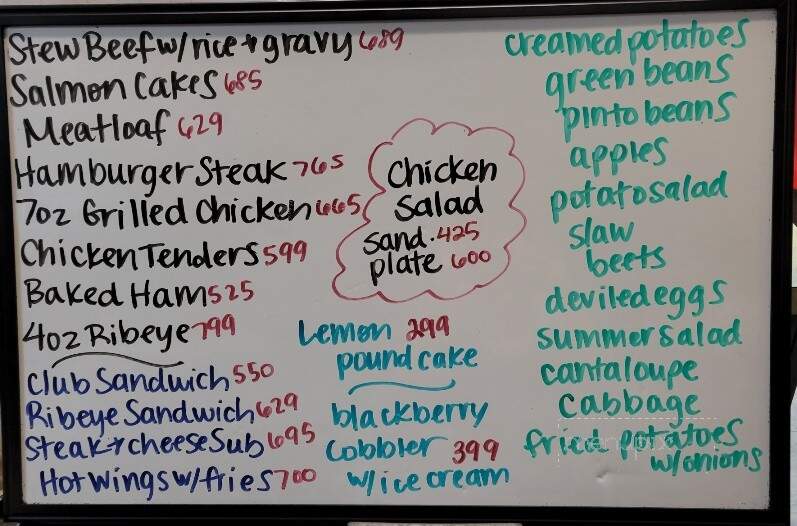 Stew Beef w/rice + gravy 689
Salmon Cakes 685
Meatloaf 629
Hamburger Steak 765
7oz Grilled Chicken 665
Chicken Tenders 599
Baked Ham 525
4oz Ribeye 799
Club Sandwich 550
Ribeye Sandwich 629
Steak + cheese Sub 695
Hot Wings w/fries 700
Chicken
Salad
Sand. 425
plate 600
Lemon 299
pound cake
blackberry
Cobbler 399
w/ice cream
creamed potatoes
green beans
pinto beans
apples
potato salad
slaw
beets
deviled eggs
summer salad
cantaloupe
cabbage
fried potatoes
w/onions